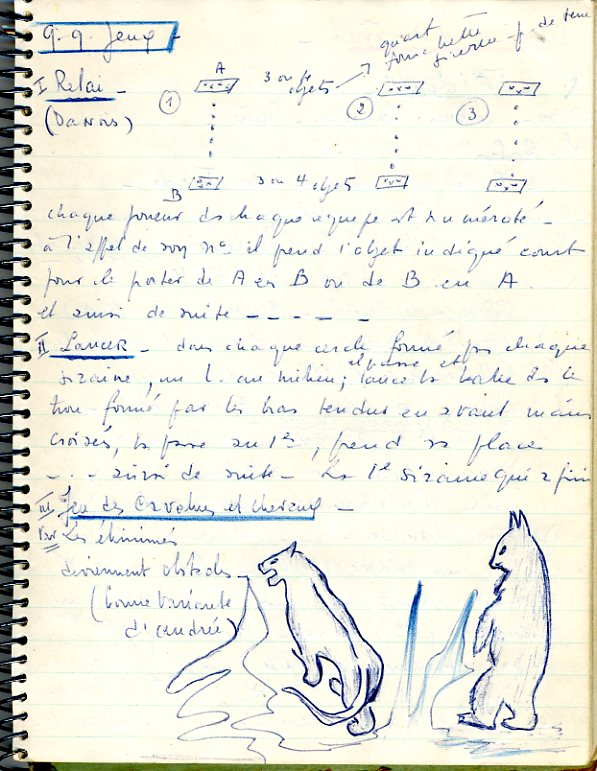 q.q. Jeux -
I Relai -
(Danois)
A
3 ou 4 objets
quart
fourchette
pierre
de terre
1 2 3
B
3 ou 4 objets
chaque joueur ds chaque equipe est numéroté -
à l'appel de son n° il prend l'objet indiqué court
pour le porter de A en B ou de B en A.
et ainsi de suite - - - - -
II Lancer - dans chaque cercle formé par chaque
et passe
sizaine, un L. au milieu; lance la balle ds le
trou formé par les bras tendus en avant mains
croisés, la passe au 1er, prend sa place
- . - ainsi de suite - La 1e sizaine qui a fini
III Jeu des Cavaliers et chevaux -
Var Les éliminés
deviennent obstacles -
(bonne variante
d'andrée)